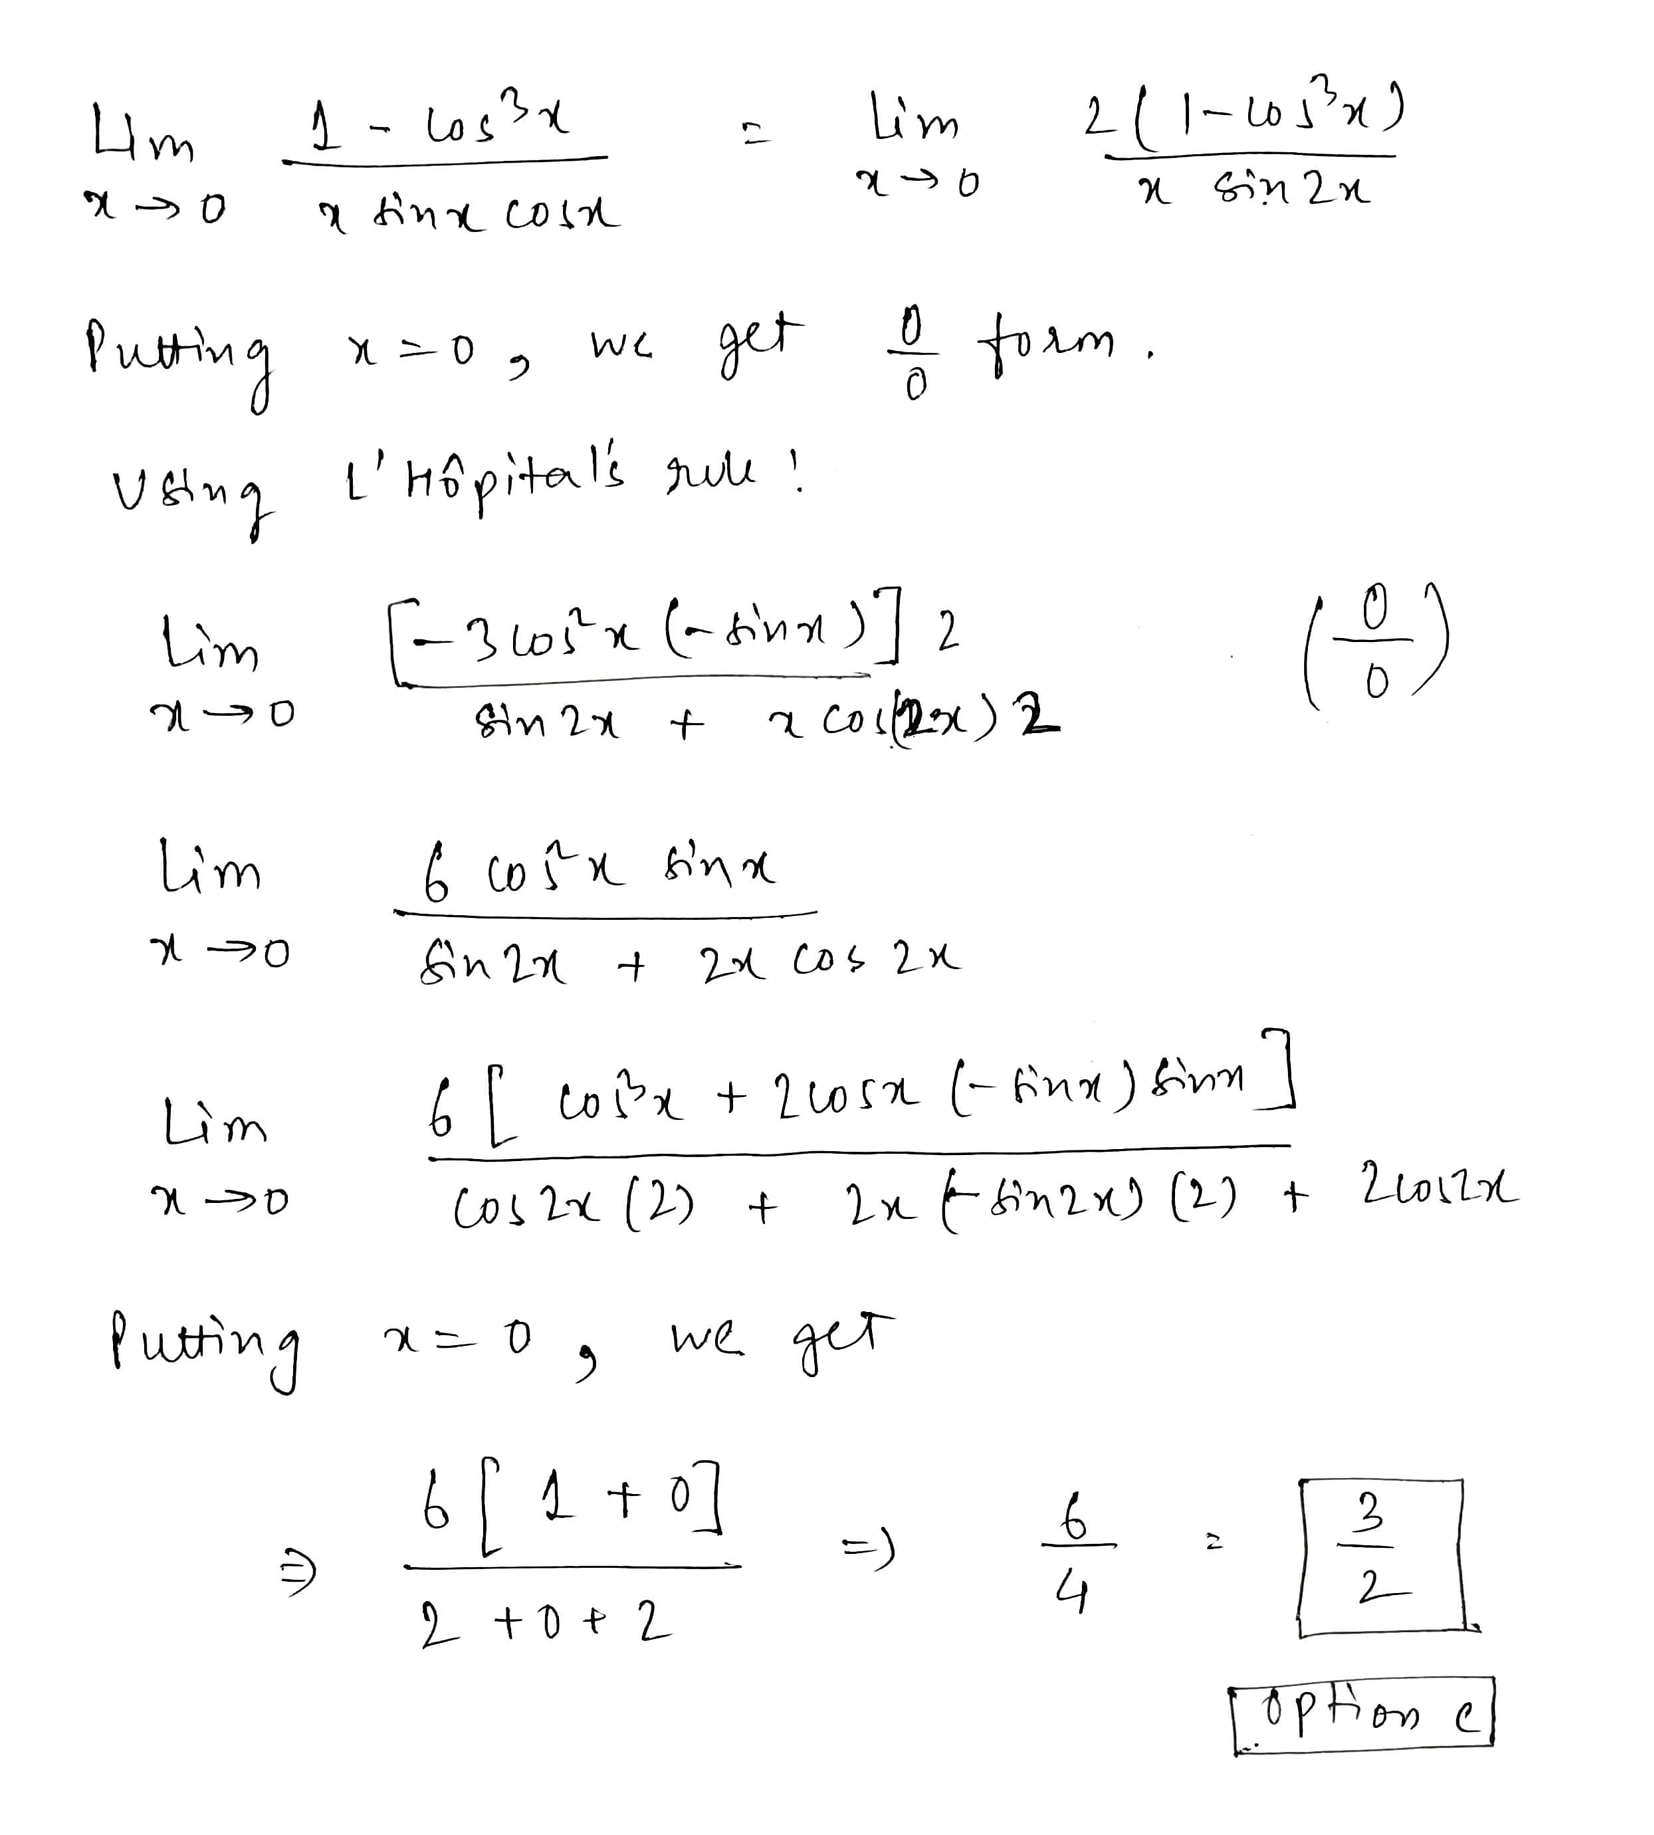 Lim x→0 (1 - cos³x)/(x sinx cosx) = Lim x→0 2(1-cos³x)/(x sin2x)
Putting x=0, we get 0/0 form.
Using L'Hôpital's rule!
Lim x→0 [-3cos²x (-sinx)]2/(sin2x + x cos(2x)2) (0/0)
Lim x→0 (6 cos²x sinx)/(sin2x + 2x cos 2x)
Lim x→0 6[cos³x + 2cosx (-sinx) sinx]/(cos2x (2) + 2x (-sin2x) (2) + 2cos2x)
Putting x=0, we get
⇒ 6[1+0]/(2+0+2) ⇒ 6/4 = 3/2
Option C